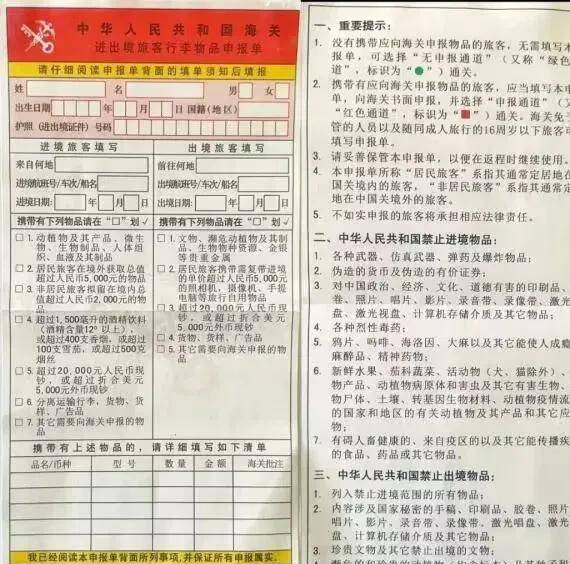 中华人民共和国海关
进出境旅客行李物品申报单
请仔细阅读申报单背面的填单须知后填报
姓 名 男 女
出生日期 年 月 日 国籍(地区)
护照（进出境证件）号码
进境旅客填写
来自何地
进境航班号/车次/船名
进境日期: 年 月 日
携带有下列物品请在“□”划✓
□ 1. 动植物及其产品、微生
物、生物制品、人体组
织、血液及其制品
□ 2. 居民旅客在境外获取总值
超过人民币5,000元的物品
□ 3. 非居民旅客拟留在境内总
值超过人民币2,000元的物
品
□ 4. 超过1,500毫升的酒精饮料
（酒精含量12°以上），
或超过400支香烟，或超过
100支雪茄，或超过500克
烟丝
□ 5. 超过20,000元人民币现
钞，或超过折合美元
5,000元外币现钞
□ 6. 分离运输行李，货物、货
样、广告品
□ 7. 其它需要向海关申报的物
品
出境旅客填写
前往何地
出境航班号/车次/船名
出境日期: 年 月 日
携带有下列物品请在“□”划✓
□ 1. 文物、濒危动植物及其制
品、生物物种资源、金银
等贵重金属
□ 2. 居民旅客携带需复带进境
的单价超过人民币5,000元
的照相机、摄像机、手提
电脑等旅行自用物品
□ 3. 超过20,000元人民币现
钞，或超过折合美元
5,000元外币现钞
□ 4. 货物、货样、广告品
□ 5. 其它需要向海关申报的物
品
携带有上述物品的，请详细填写如下清单
品名/币种 型号 数量 金额 海关批注
我已经阅读本申报单背面所列事项，并保证所有申报属实。
一、重要提示：
1. 没有携带应向海关申报物品的旅客，无需填写本
报单，可选择“无申报通道”（又称“绿色
道”，标识为“●”）通关。
2. 携带有应向海关申报物品的旅客，应当填写本申
单，向海关书面申报，并选择“申报通道”（又
“红色通道”，标识为“■”）通关。海关免于
管的人员以及随同成人旅行的16周岁以下旅客可
填写申报单。
3. 请妥善保管本申报单，以便在返程时继续使用。
4. 本申报单所称“居民旅客”系指其通常定居地在
国关境内的旅客，“非居民旅客”系指其通常定
地在中国关境外的旅客。
5. 不如实申报的旅客将承担相应法律责任。
二、中华人民共和国禁止进境物品：
1. 各种武器、仿真武器、弹药及爆炸物品；
2. 伪造的货币及伪造的有价证券；
3. 对中国政治、经济、文化、道德有害的印刷品、
卷、照片、唱片、影片、录音带、录像带、激光
盘、激光视盘、计算机存储介质及其它物品；
4. 各种烈性毒药；
5. 鸦片、吗啡、海洛因、大麻以及其它能使人成瘾
麻醉品、精神药物；
6. 新鲜水果、茄科蔬菜、活动物（犬、猫除外）、
物产品、动植物病原体和害虫及其它有害生物、
物尸体、土壤、转基因生物材料、动植物疫情流
的国家和地区的有关动植物及其产品和其它应
物；
7. 有碍人畜健康的、来自疫区的以及其它能传播疾
的食品、药品或其它物品。
三、中华人民共和国禁止出境物品：
1. 列入禁止进境范围的所有物品；
2. 内容涉及国家秘密的手稿、印刷品、胶卷、照片
唱片、影片、录音带、录像带、激光唱盘、激光
盘、计算机存储介质及其它物品；
3. 珍贵文物及其它禁止出境的文物；